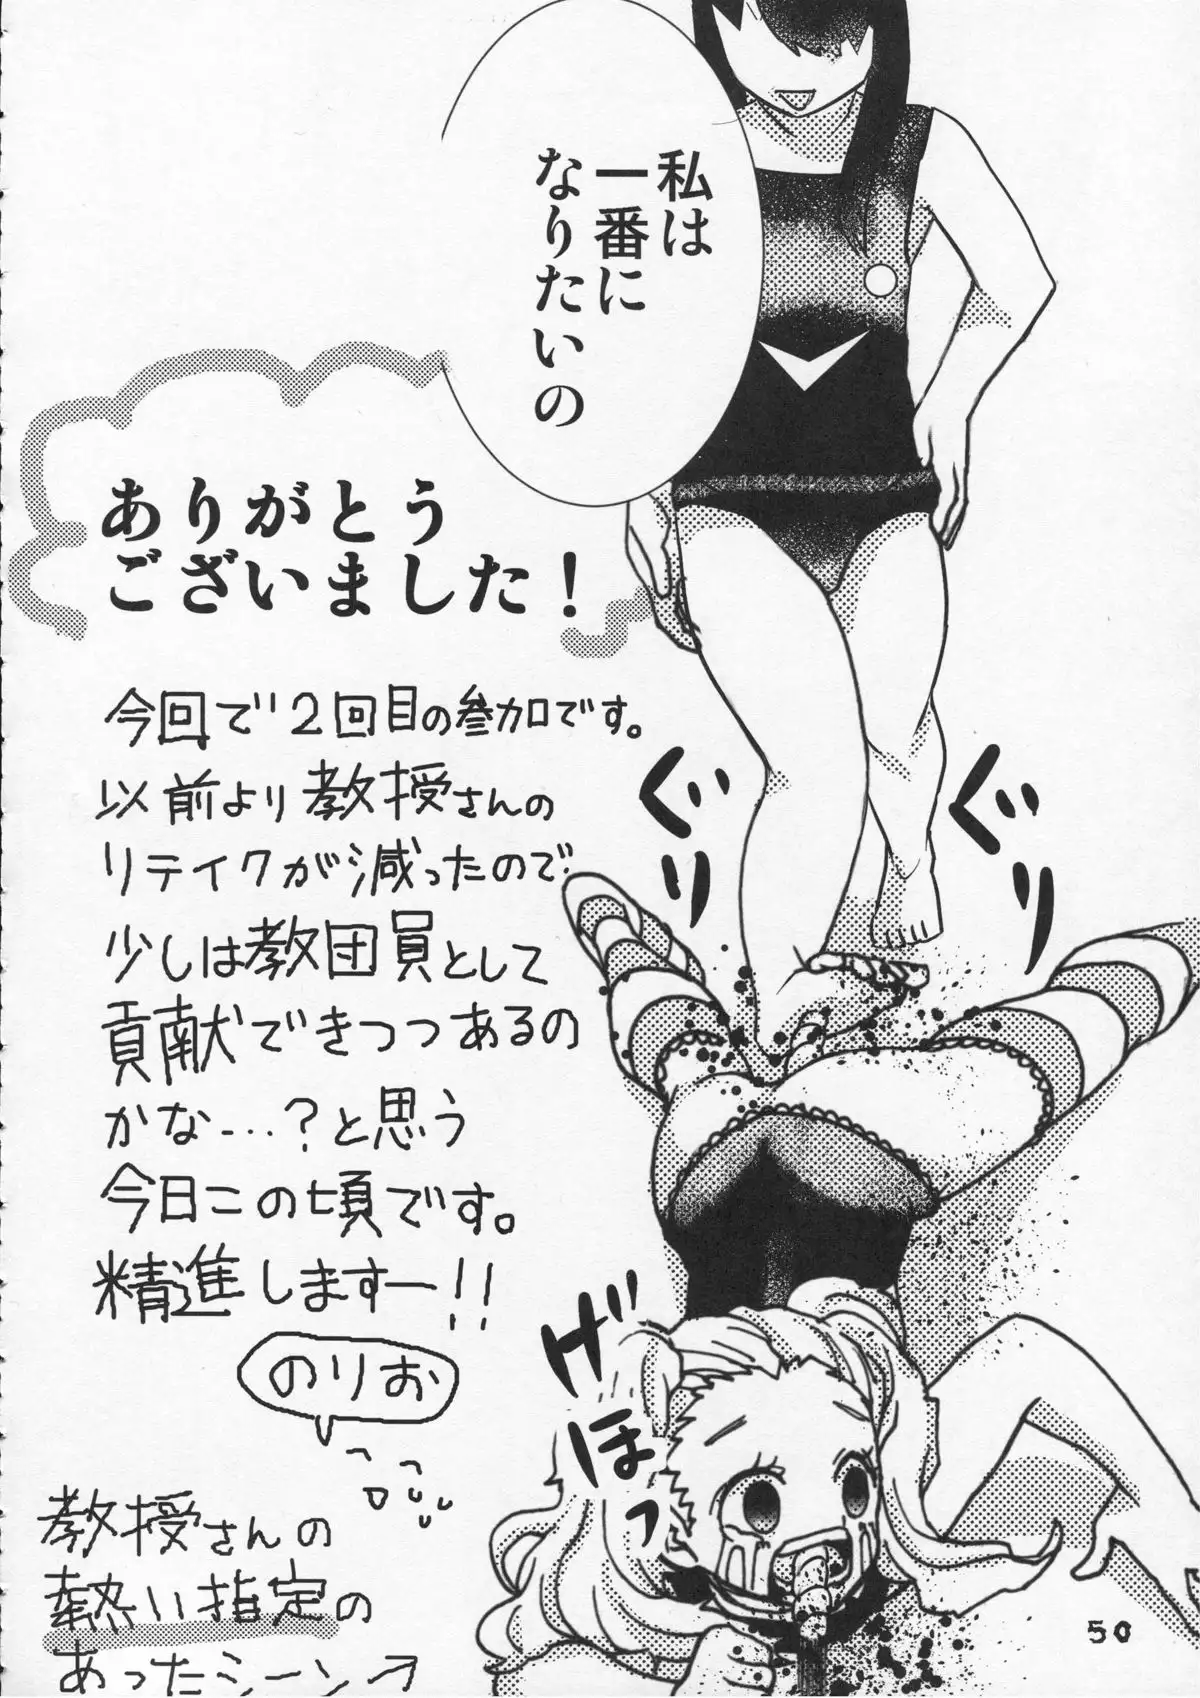 私は
一番に
なりたいの
ありがとう
ございました!
今回で2回目の参加です。
以前より教授さんの
リテイクが減ったので
少しは教団員として
貢献できつつあるの
かな…?と思う
今日この頃です。
精進しますー!!
のりお
教授さんの
熱い指定の
あったシーン→
ぐり
ぐり
げほっ
50